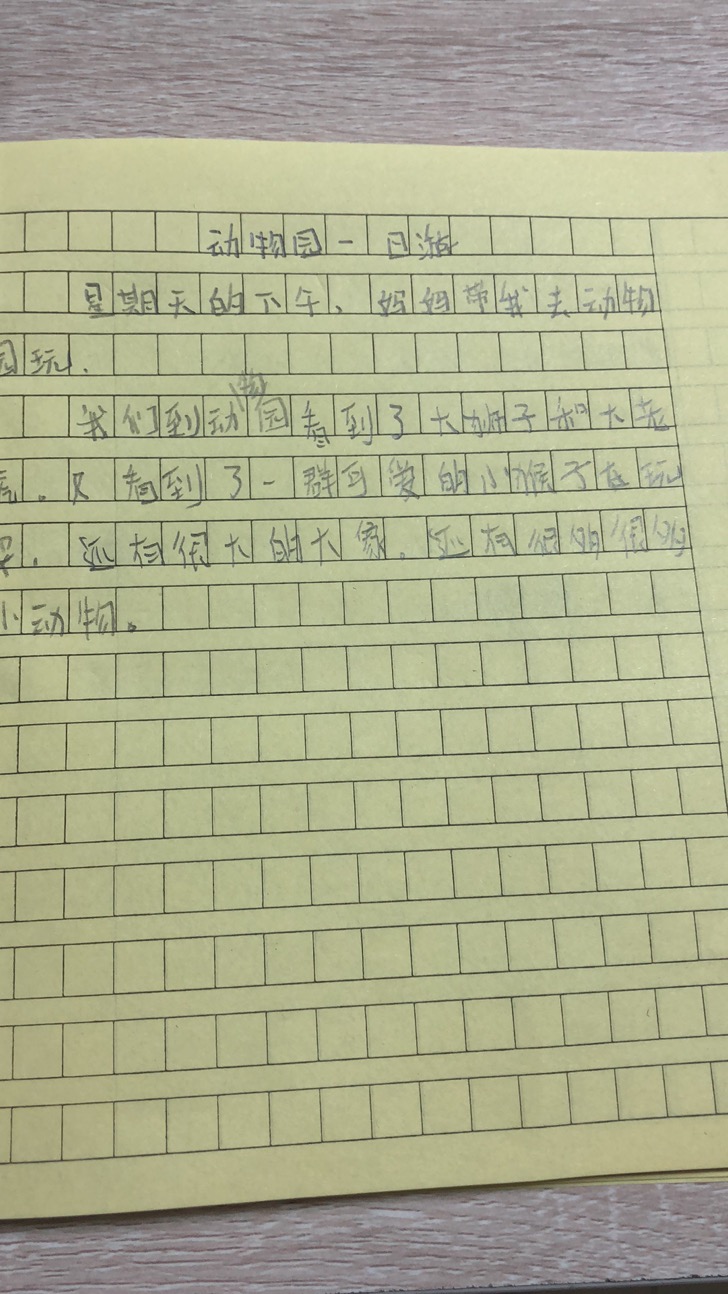 动物园一日游
星期天的下午、妈妈带我去动物
园玩.
我们到动物园看到了大狮子和大老
虎.又看到了一群可爱的小猴子在玩
耍.还有很大的大象.还有很多很多
小动物。